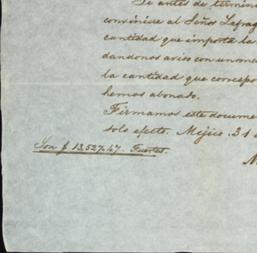 Si antes de termin
conviniese al Señor Lafrag
cantidad que importa la
dandonos aviso con un one
la cantidad que correspo
hemos abonado.
Firmamos este docume
solo efecto. Mejico. 31 d
Son $ 13,527.47. Fuertes.